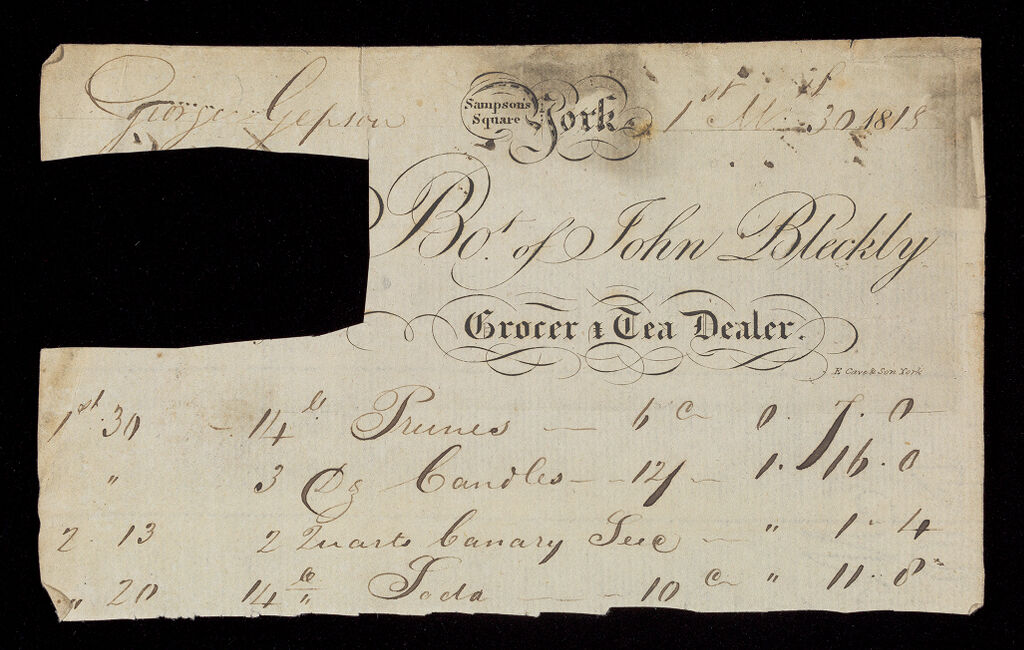 George Gepson Sampson's Square York. 1st M 30 1818
Bot. of John Bleckly
Grocer & Tea Dealer.
E Cave & Son York
1st 30 - 14 lb Prunes - 6 c 0. 7. 0
" 3 Dz Candles - 12/ - 1. 16. 0
2. 13 2 Quarts Canary Seed - " 1. 4
" 20 14 lb Soda - 10 c " 11. 8